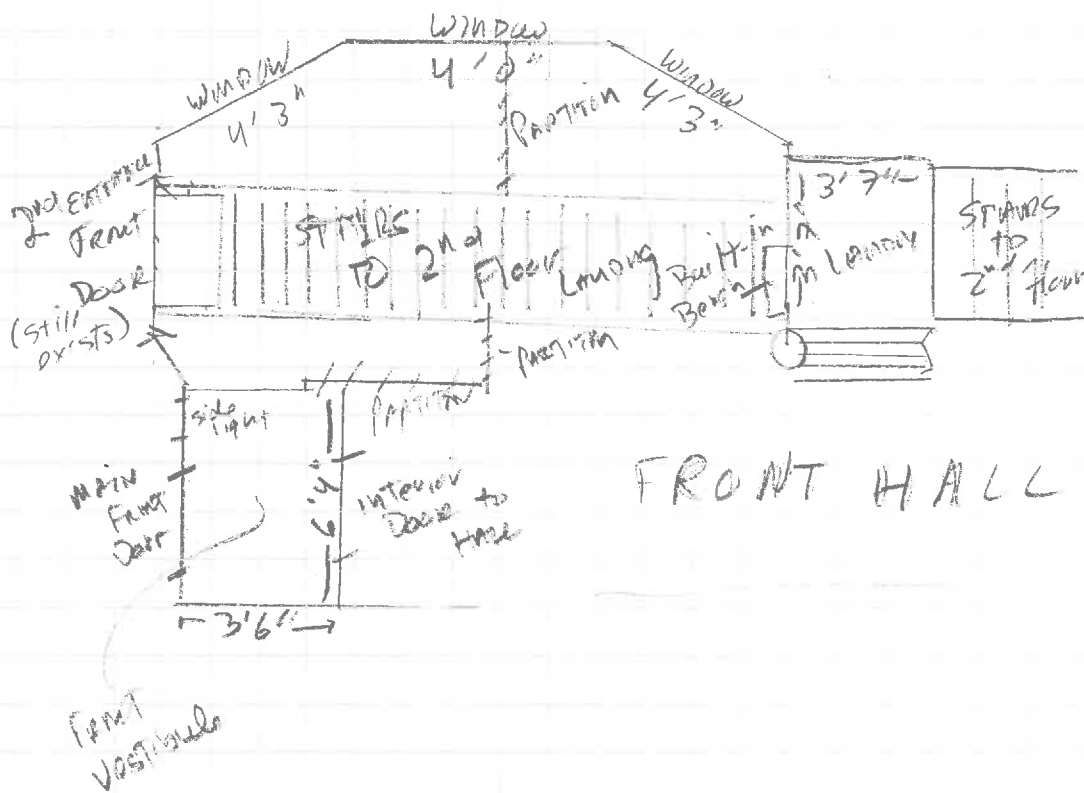 WINDOW
4' 3"
WINDOW
4' 0"
WINDOW
4' 3"
PARTITION
2nd ENTRANCE
FRONT
DOOR
(still
exists)
STAIRS
TO 2nd
Floor LANDING
Built-in
Bench
3' 7"
LANDING
STAIRS
to
2nd Floor
PARTITION
PARTITION
side
light
MAIN
FRONT
Door
6'4"
interior
Door to
HALL
FRONT HALL
3'6"
FRONT
VESTIBULE